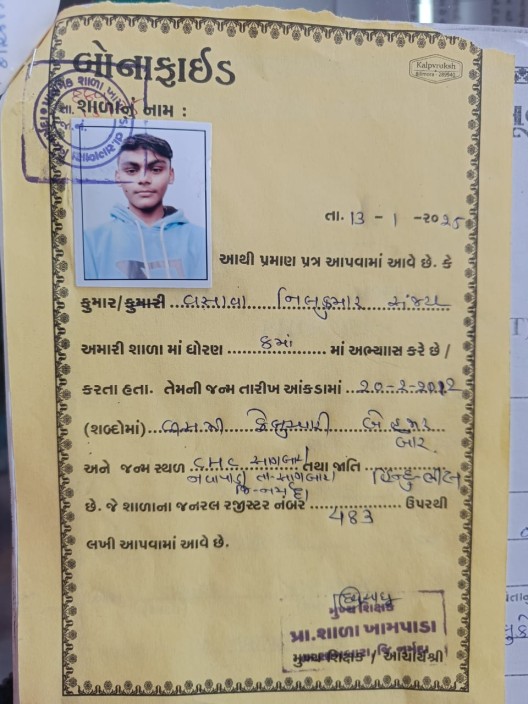 બોનાફાઈડ
Kalpvruksh
શાળાનું નામ :
તા. 13 - 1 -૨૦૨૫
આથી પ્રમાણ પત્ર આપવામાં આવે છે. કે
કુમાર/કુમારી વસાવા નિલકુમાર સંજય
અમારી શાળા માં ધોરણ ૮માં માં અભ્યાસ કરે છે /
કરતા હતા. તેમની જન્મ તારીખ આંકડામાં ૨૦-૨-૨૦૧૨
(શબ્દોમાં) વીસમી ફેબ્રુઆરી બે હજાર
બાર
અને જન્મ સ્થળ CHC સાગબારા તથા જાતિ હિન્દુ-ભીલ
નવાપાડા તા-સાગબારા
જિ-નર્મદા
છે. જે શાળાના જનરલ રજીસ્ટર નંબર 483 ઉપરથી
લખી આપવામાં આવે છે.
મુખ્ય શિક્ષક
પ્રા.શાળા ખામપાડા
મુખ્ય શિક્ષક / આચાર્યશ્રી